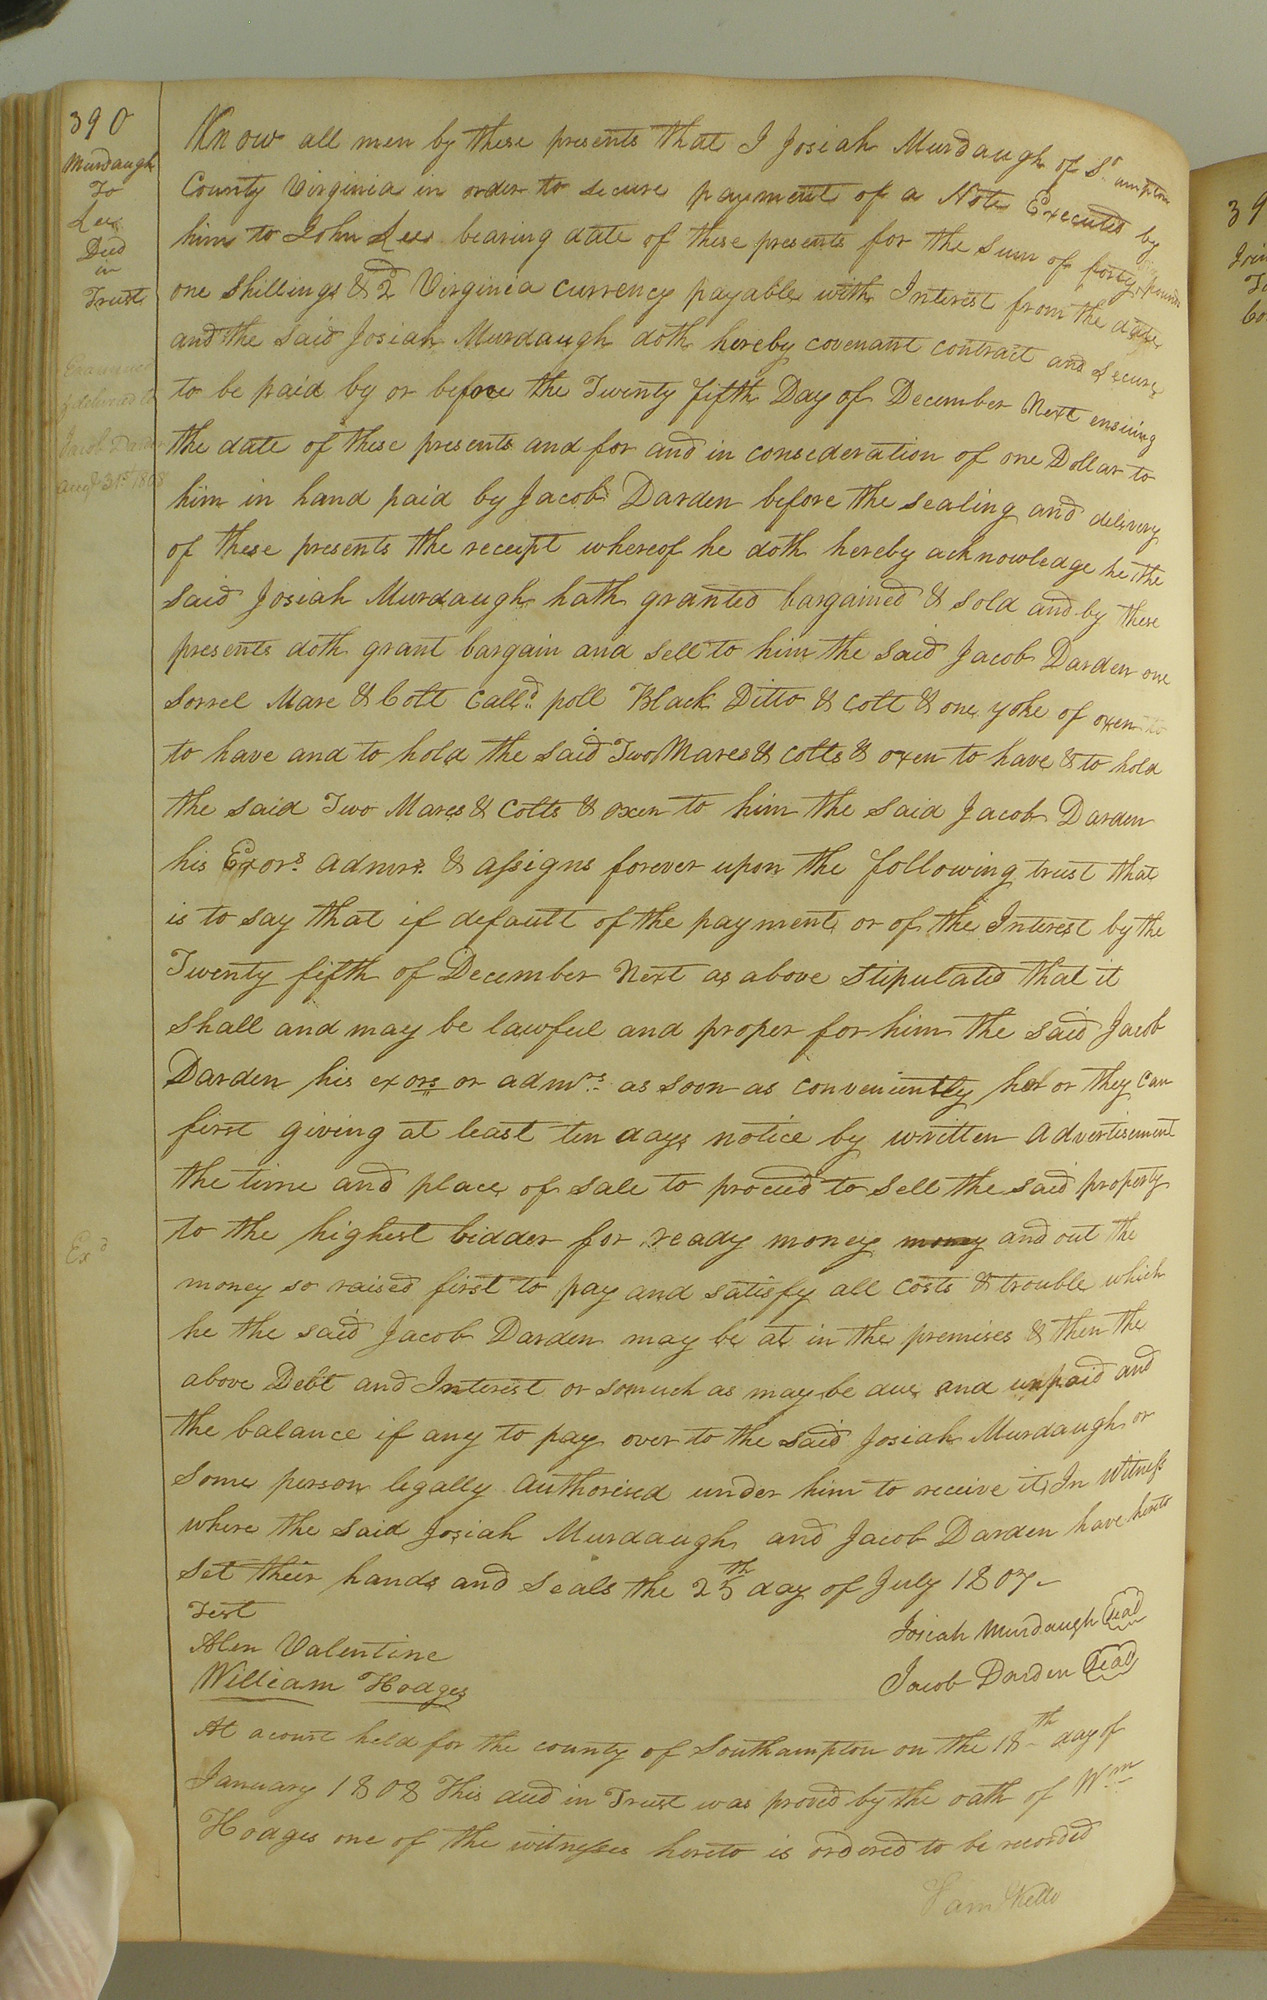 390
Murdaugh
To
Lee
Deed
in
Trust
Examined
& delivered to
Jacob Darden
Augt 31st 1808
Know all men by these presents that I Josiah Murdaugh of So. ampton
County Virginia in order to secure payment of a Note Executed by
him to John Lee bearing date of these presents for the sum of forty pounds
one shillings & 2d Virginia currency payable with Interest from the date
and the said Josiah Murdaugh doth hereby covenant contract and secure
to be paid by or before the Twenty fifth Day of December Next ensuing
the date of these presents and for and in consederation of one Dollar to
him in hand paid by Jacob Darden before the sealing and delivery
of these presents the receipt whereof he doth hereby acknowledge he the
said Josiah Murdaugh hath granted bargained & sold and by these
presents doth grant bargain and sell to him the said Jacob Darden one
Sorrel Mare & Colt Calld poll Black Ditto & Colt & one yoke of oxen to
to have and to hold the said Two Mares & Colts & oxen to have & to hold
the said Two Mares & Colts & oxen to him the said Jacob Darden
his Exors. admrs. & assigns forever upon the following trust that
is to say that if default of the payment or of the Interest by the
Twenty fifth of December Next as above stipulated that it
shall and may be lawful and proper for him the said Jacob
Darden his exors or admrs. as soon as conveniently he or they can
first giving at least ten days notice by written advertisement
the time and place of sale to proceed to sell the said property
to the highest bidder for ready money money and out the
money so raised first to pay and satisfy all costs & trouble which
he the said Jacob Darden may be at in the premises & then the
above Debt and Interest or somuch as may be due and unpaid and
the balance if any to pay over to the said Josiah Murdaugh or
some person legally authorised under him to receive it, In Witness
where the said Josiah Murdaugh and Jacob Darden have hereto
set their hands and seals the 25th day of July 1807-
Test
Alen Valentine
William Hodges
Josiah Murdaugh Seal
Jacob Darden Seal
Exd
At a court held for the county of Southampton on the 18th day of
January 1808 This deed in Trust was proved by the oath of Wm
Hodges one of the witnesses hereto is ordered to be recorded
Sam Kello
39
To